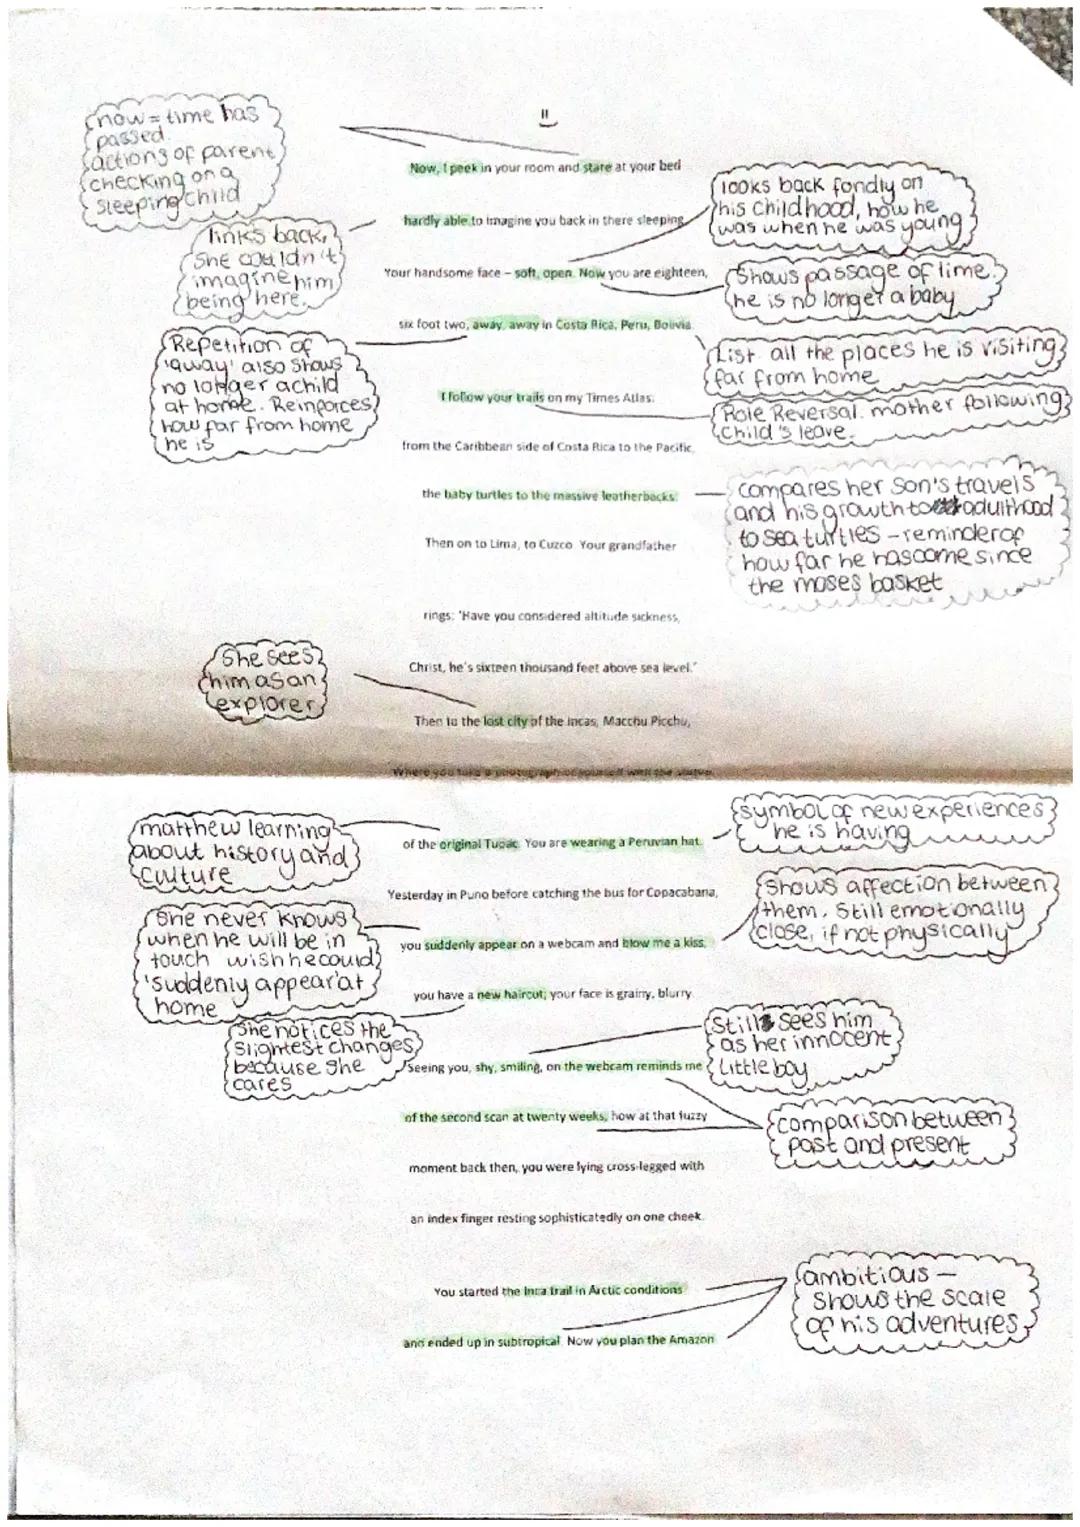 now = time has
passed.
actions of parent
checking on a
sleeping child
II
Now, I peek in your room and stare at your bed
hardly able to imagine you back in there sleeping,
looks back fondly on
his childhood, how he
was when he was young
links back,
She couldn't
imagine him
being here.
Your handsome face – soft, open. Now you are eighteen,
Shows passage of time.
he is no longer a baby
six foot two, away, away in Costa Rica, Peru, Bolivia.
Repetition of
'away' also shows
no longer a child
at home. Reinforces
how far from home
he is
List all the places he is visiting
far from home
I follow your trails on my Times Atlas:
Role Reversal. mother following
child's leave.
from the Caribbean side of Costa Rica to the Pacific,
the baby turtles to the massive leatherbacks.
compares her son's travels
and his growth to adulthood
to sea turtles – reminder of
how far he has come since
the moses basket
Then on to Lima, to Cuzco. Your grandfather
rings: 'Have you considered altitude sickness,
Christ, he's sixteen thousand feet above sea level.'
She sees
him as an
explorer
Then to the lost city of the Incas, Macchu Picchu,
Where you take a photograph of yourself with the statue
matthew learning
about history and
culture
of the original Tupac. You are wearing a Peruvian hat.
symbol of new experiences
he is having
Yesterday in Puno before catching the bus for Copacabana,
Shows affection between
them. Still emotionally
close, if not physically
She never knows
when he will be in
touch wish he could
'suddenly appear' at
home
you suddenly appear on a webcam and blow me a kiss,
you have a new haircut; your face is grainy, blurry.
She notices the
slightest changes
because she
cares
Still sees him
as her innocent
little boy
Seeing you, shy, smiling, on the webcam reminds me
of the second scan at twenty weeks, how at that fuzzy
comparison between
past and present
moment back then, you were lying cross-legged with
an index finger resting sophisticatedly on one cheek.
You started the Inca trail in Arctic conditions
ambitious –
Shows the scale
of his adventures
and ended up in subtropical. Now you plan the Amazon